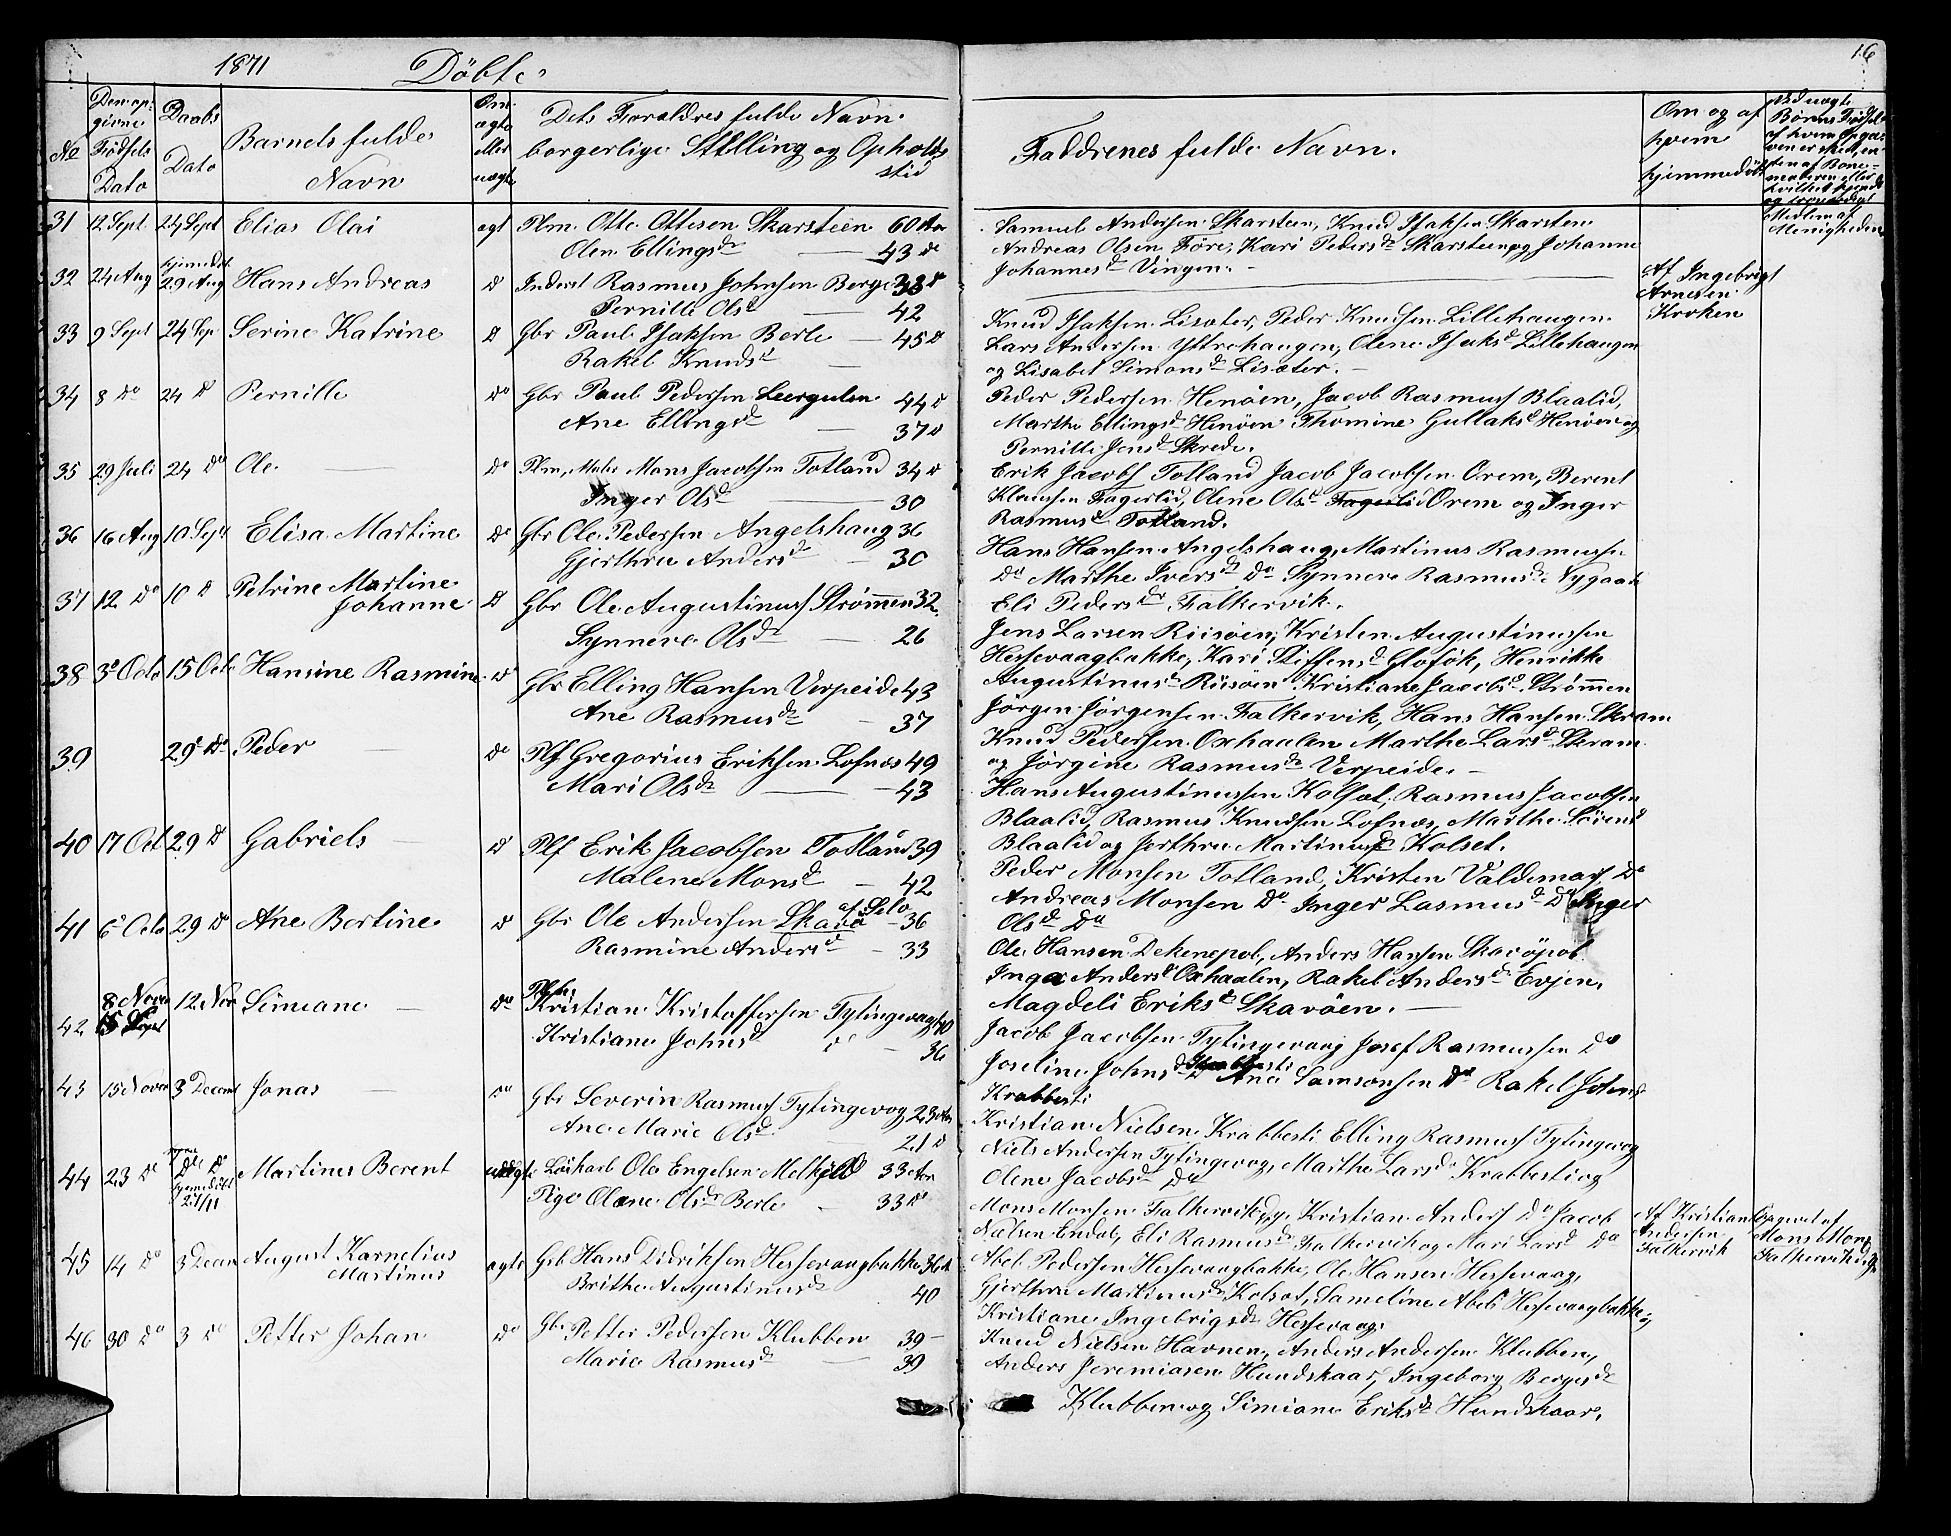 1871 Döbte
16
No
Den op-
givne
Födsels
Dato
Daabs
Dato
Barnets fulde
Navn
Om
ægte
eller
uægte
Dets Foraldres fulde Navn
borgerlige Stilling og Opholds
stid
Faddrenes fulde Navn.
Om og af
hvem
hjemmedöbt
31 12 Sept. 24 Sept Elias Olai ægt Plm. Otte Ottesen Skarsteen 60 Aar
Olen Ellingsdr 43 do
Samuel Andersen Skarsteen, Knud Isaksen Skarsteen
Andreas Olsen Före, Kari Pedersdr Skarsteen og Johanne
Johannesdr Vingen.
32 24 Aug hjemmedöbt 29 Aug Hans Andreas do Inderst Rasmus Johnsen Berge 38 do
Pernille Olsdr 42
Af Ingebrigt
Arnesen
Kroken
33 9 Sept 24 Sep Serine Katrine do Gbr Paul Isaksen Berle 45 do
Rakel Knudsdr
Knud Isaksen Lisæter, Peder Knudsen Lillehaugen
Lars Andersen Yttrehaugen, Olene Isaksdr Lillehaugen
og Lisabet Simonsdr Lisæter.
34 8 do 24 do Pernille do Gbr Paul Pedersen Leergulen 44 do
Ane Ellingsdr 37 do
Peder Pedersen Henöen, Jacob Rasmuss Blaalid,
Marthe Ellingsdr Henöen Thomine Gullaksdr Henöen og
Pernille Jensdr Skrede.
35 29 Juli 24 do Ole do Plm, Mons Jacobsen Totland 34 do
Inger Olsdr 30
Erik Jacobs Totland Jacob Jacobsen Orem, Berent
Klausen Fagerlid, Olene Olsdr Fagerlid Orem og Inger
Rasmusdr Totland.
36 16 Aug 10 Sept Elisa Martine do Gbr Ole Pedersen Angelshaug 36
Gjerthru Andersdr 30
Hans Hansen Angelshaug, Martinus Rasmussen
do Marthe Iversdr do Synneve Rasmusdr Nygaard
Eli Pedersdr Falkervik.
37 12 do 10 do Petrine Martine
Johanne do Gbr Ole Augustinuss Strømmen 32
Synneve Olsdr 26
Jens Larsen Riisöen, Kristen Augustinussen
Hessevaagbakke, Kari Stiffensdr Glofök, Henrikke
Augustinusdr Riisöen Kristiane Jacobsdr Strømmen
38 3e Octo 15 Octo Hansine Rasmine do Gbr Elling Hansen Verpeide 43
Ane Rasmusdr 37
Jörgen Jörgensen Falkervik, Hans Hansen Skram
Knud Pedersen Oxhaalen Marthe Larsdr Skram
og Jörgine Rasmusdr Verpeide.
39 29 do Peder do Plf Gregorius Eriksen Lofnæs 49
Mari Olsdr 43
Hans Augustinussen Kolset, Rasmus Jacobsen
Blaalid, Rasmus Knudsen Lofnæs, Marthe Sörensdr
Blaalid og Jerthru Martinusdr Kolset.
40 17 Oct 29 do Gabriels do Plf Erik Jacobsen Totland 39
Malene Monsdr 42
Peder Monsen Totland, Kristen Valdemars do
Andreas Monsen do Inger Rasmusdr do Inger
Olsdr do
41 6e Octo 29 do Ane Bertine do Gbr Ole Andersen Skavö af Selv 36
Rasmine Andersdr 33
Ole Hansen Dekenepol, Anders Hansen Skavöpol
Inga Andersdr Oxhaalen, Rakel Andersdr Evjen,
Magdeli Eriksdr Skavöen.
42 8 Nove 12 Nov Simiane do Kristian Kristoffersen Tytingevaag 40
Kristiane Johnsdr do 36
Jacob Jacobsen Tytingevaag Josef Rasmussen do
Joseline Johnsdr Krabbesti Ane Samsonsen do Rakel Johnsdr
Krabbesti
43 15 Nover 3 Decemr Jonas do Gbr Severin Rasmuss Tytingevog 23 Aar
Ane Marie Olsdr 21 do
Kristian Nielsen Krabbesti Elling Rasmuss Tytingevog
Niels Andersen Tytingevog, Marthe Larsdr Krabbesti og
Olene Jacobsdr do
44 23 do do hjemmedöbt 25/11 Martines Berent uægte Löskarl Ole Engelsen Melheld 33 Aar
Pige Olene Olsdr Berle 33 do
Mons Monsen Falkervik, Kristian Anders do Jacob
Nielsen Endal, Eli Rasmusdr Falkervik og Mari Larsdr do
Af Kristian
Andersen
Falkervik
Opgivet af
Mons Mons
Falkervik
45 14 do 3 Decem August Karnelius
Martinus ægte Gbr Hans Didriksen Hessevaagbakke 36
Brithe Augustinusdr 40
Abel Pedersen Hessevaagbakke, Ole Hansen Hessevaag,
Gjerthru Martinusdr Kolset, Sameline Abels Hessevaagbakke og
Kristiane Ingebrigsdr Hessevaag.
46 30 do 3 do Petter Johan do Gbr Petter Pedersen Klubben 39
Marie Rasmusdr 39
Knud Nielsen Havnen, Anders Andersen Klubben,
Anders Jeremiasen Hundskaar, Ingeborg Bergesdr
Klubben og Simiane Eriksdr Hundskaar.